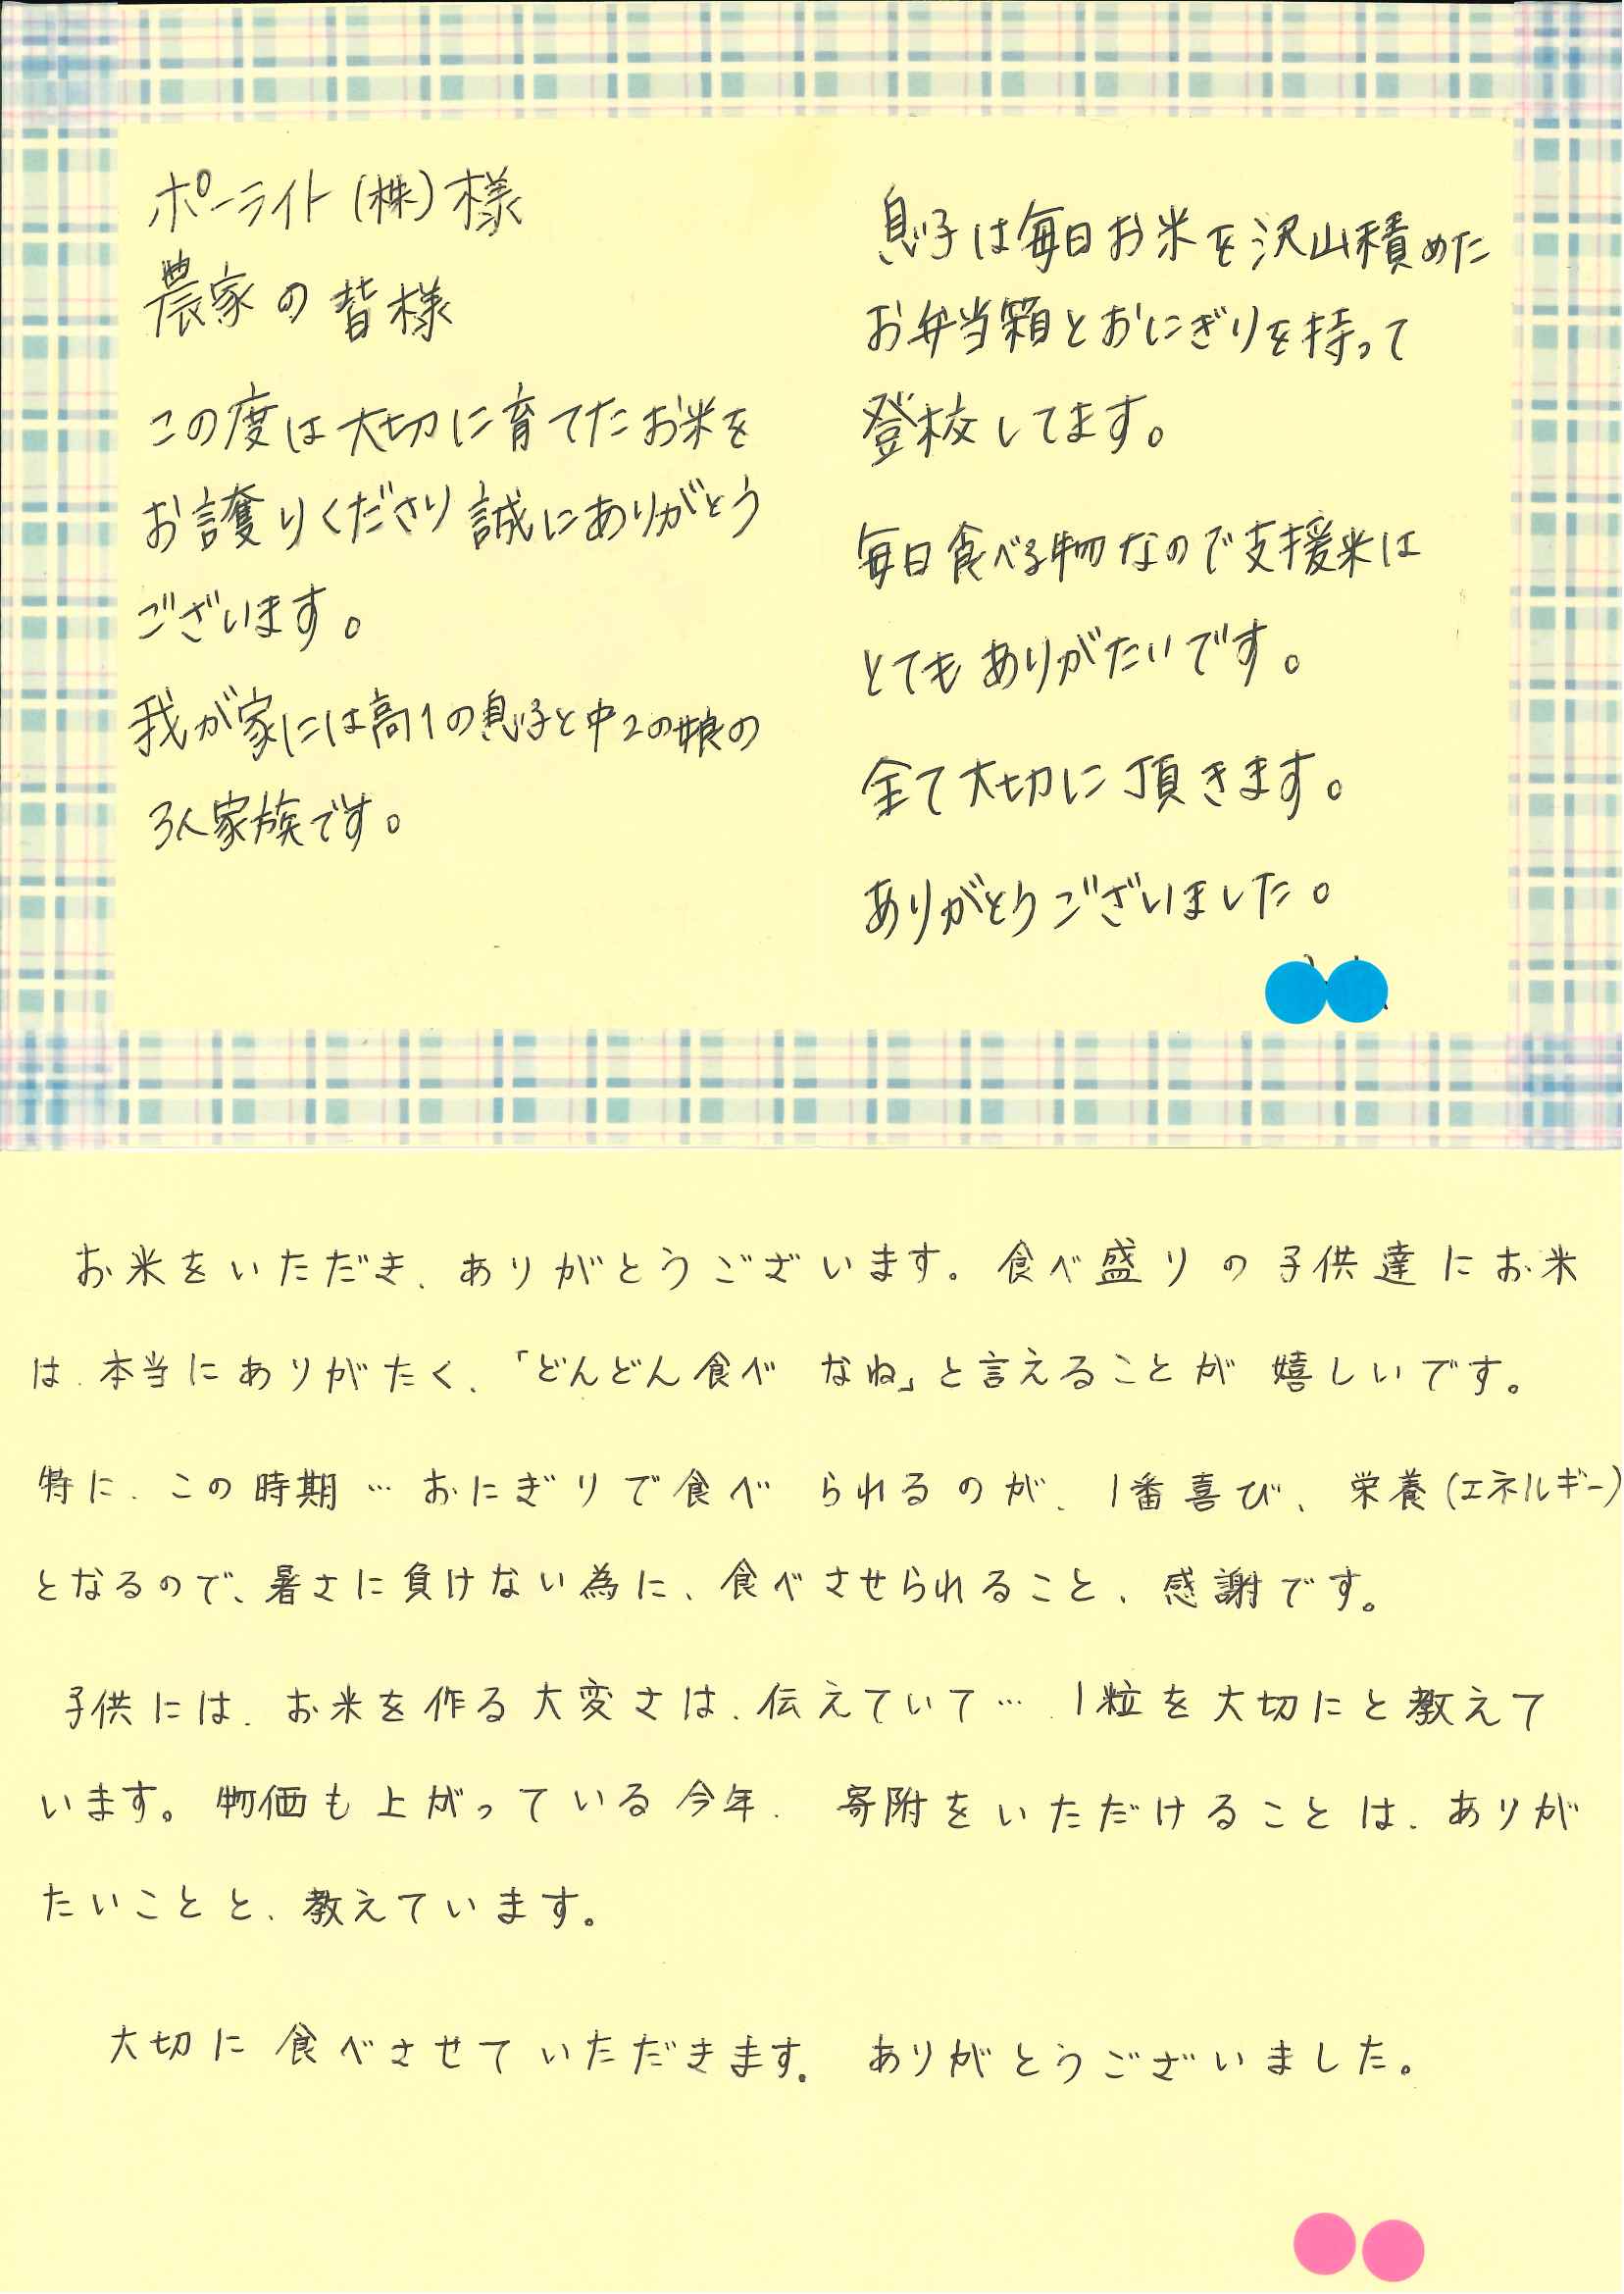 ポーライト(株)様
農家の皆様
この度は大切に育てたお米を
お譲りくださり誠にありがとう
ございます。
我が家には高1の息子と中2の娘の
3人家族です。
息子は毎日お米を沢山積めた
お弁当箱とおにぎりを持って
登校してます。
毎日食べる物なので支援米は
とてもありがたいです。
全て大切に頂きます。
ありがとうございました。
お米をいただき、ありがとうございます。食べ盛りの子供達にお米
は、本当にありがたく、「どんどん食べなね」と言えることが嬉しいです。
特に、この時期…おにぎりで食べられるのが、1番喜び、栄養(エネルギー)
となるので、暑さに負けない為に、食べさせられること、感謝です。
子供には、お米を作る大変さは、伝えていて…、1粒を大切にと教えて
います。物価も上がっている今年、寄附をいただけることは、ありが
たいことと、教えています。
大切に食べさせていただきます。ありがとうございました。